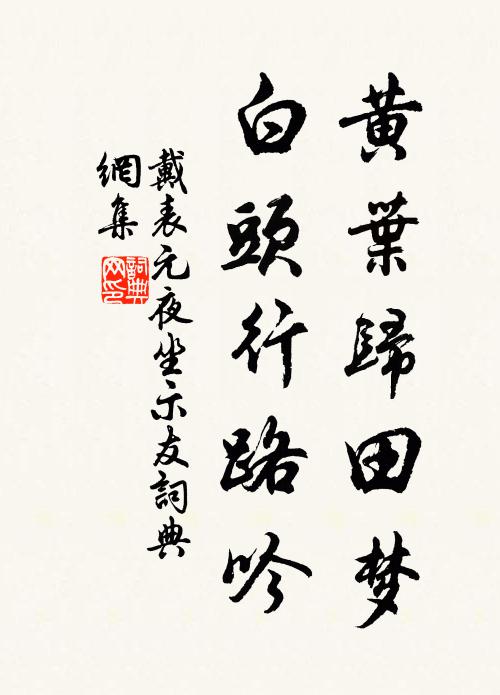 黄葉歸田梦
白頭行路吟
戴表元夜坐示友詞典
網集
詞典
网印